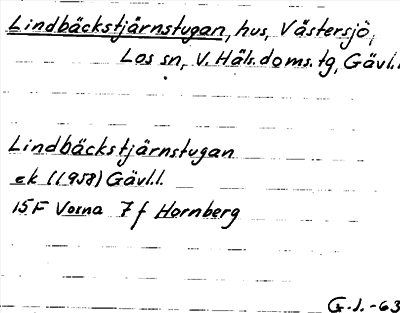 Lindbäckstjärnstugan, hus, Västersjö,
Los sn, V. Häls. doms. tg, Gävl.l.
Lindbäckstjärnstugan
ek (1958) Gävl.l.
15F Voxna 7f Hornberg
G.J.-63